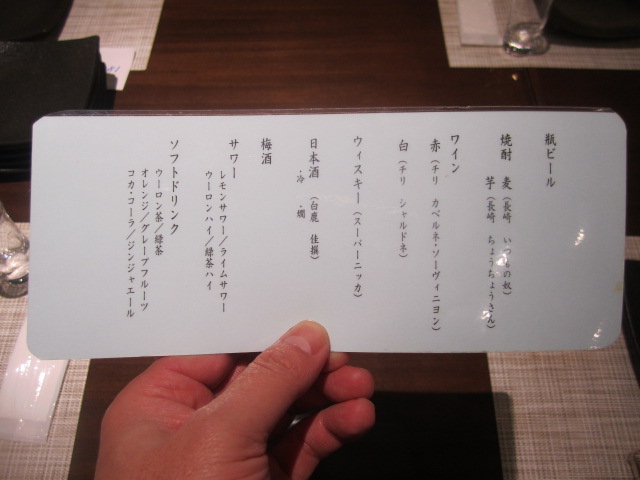 瓶ビール
焼酎　麦（長崎　いつもの奴）
芋（長崎　ちょうちょうさん）
ワイン
赤（チリ　カベルネ・ソーヴィニヨン）
白（チリ　シャルドネ）
ウィスキー（スーパーニッカ）
日本酒　（白鹿　佳撰）
・冷　・燗
梅酒
サワー
レモンサワー／ライムサワー
ウーロンハイ／緑茶ハイ
ソフトドリンク
ウーロン茶／緑茶
オレンジ／グレープフルーツ
コカ・コーラ／ジンジャエール